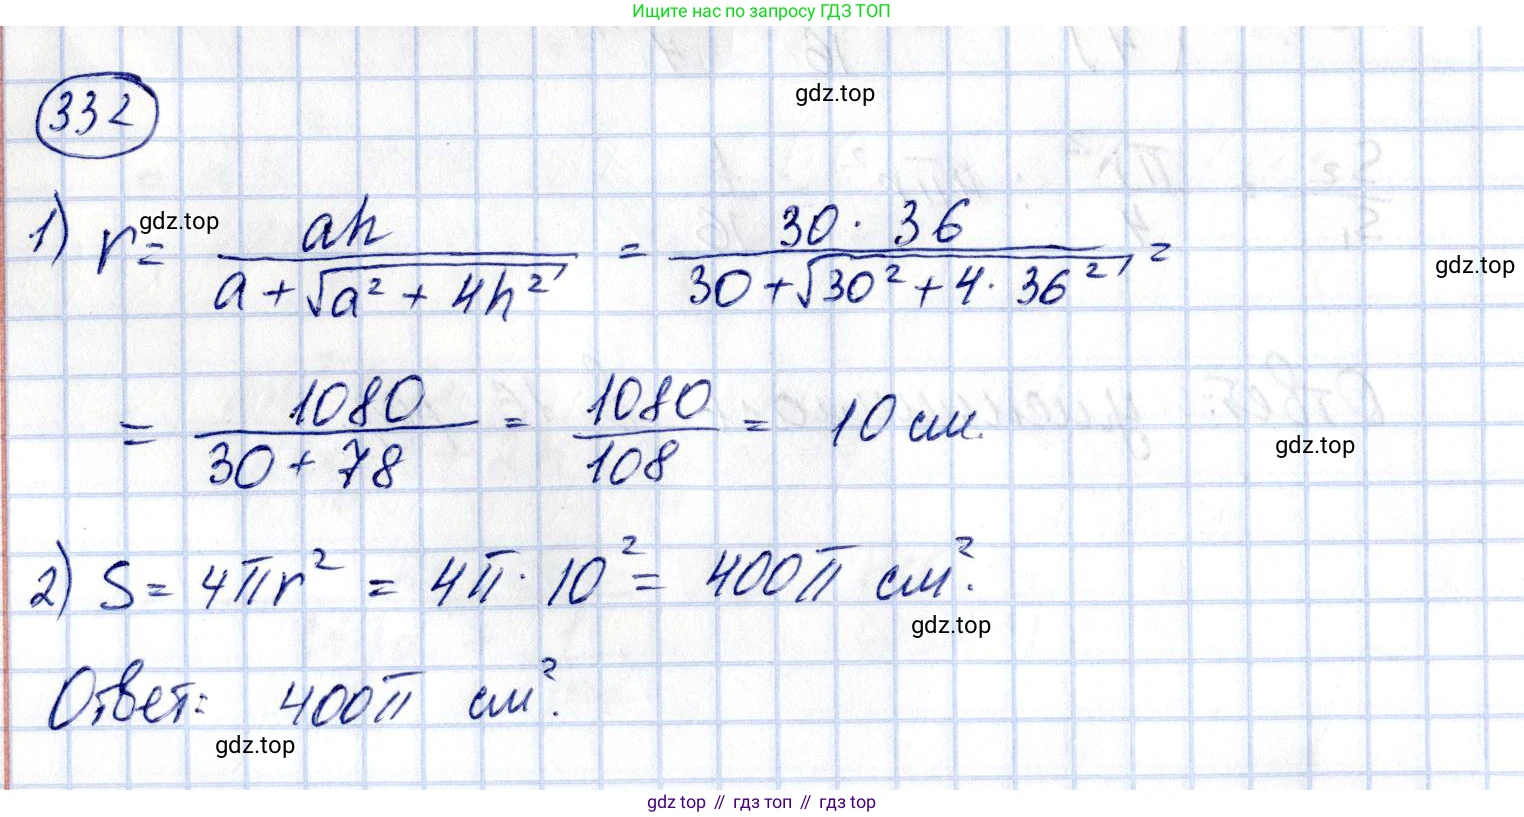 Ищите нас по запросу ГДЗ ТОП
332
gdz.top
1) r = ah / (a + √(a² + 4h²)) = 30 · 36 / (30 + √(30² + 4 · 36²)) =
gdz.top
gdz.top
= 1080 / (30 + 78) = 1080 / 108 = 10 см.
gdz.top
2) S = 4πr² = 4π · 10² = 400π см².
gdz.top
Ответ: 400π см².
gdz.top
gdz top // гдз топ // гдз top